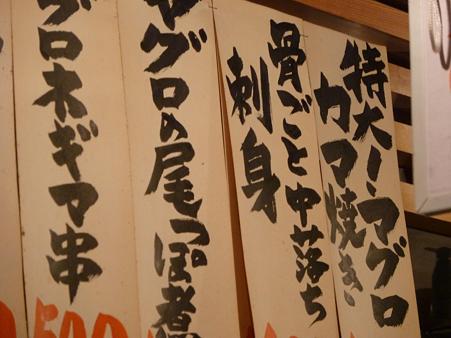 特大！マグロ
カマ焼き
骨ごと中落ち
刺身
マグロの尾っぽ煮
グロネギマ串
500